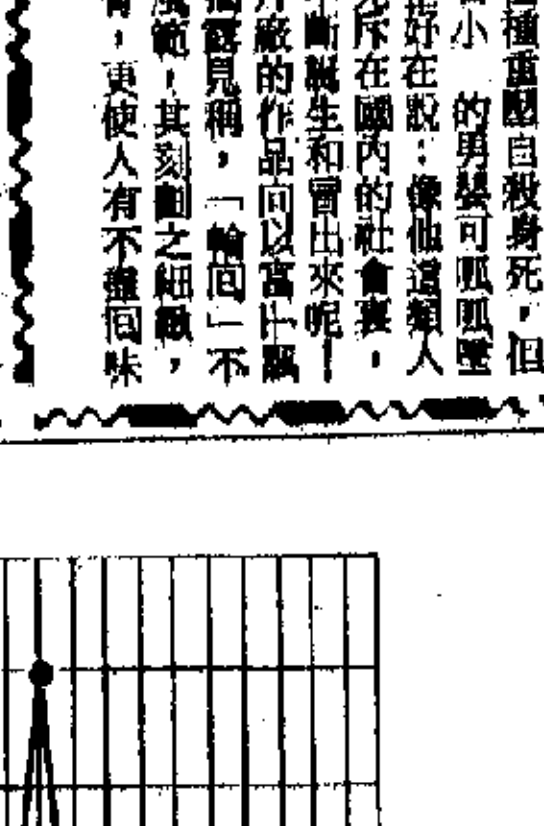 種重壓自殺身死，但
小 的男嬰可呱呱墜
好在說：像他這類人
斥在國內的社會裏，
斷誕生和冒出來呢！
廠的作品向以富
見稱，「輪回」不
範，其刻劃之細緻，
，更使人有不盡回味